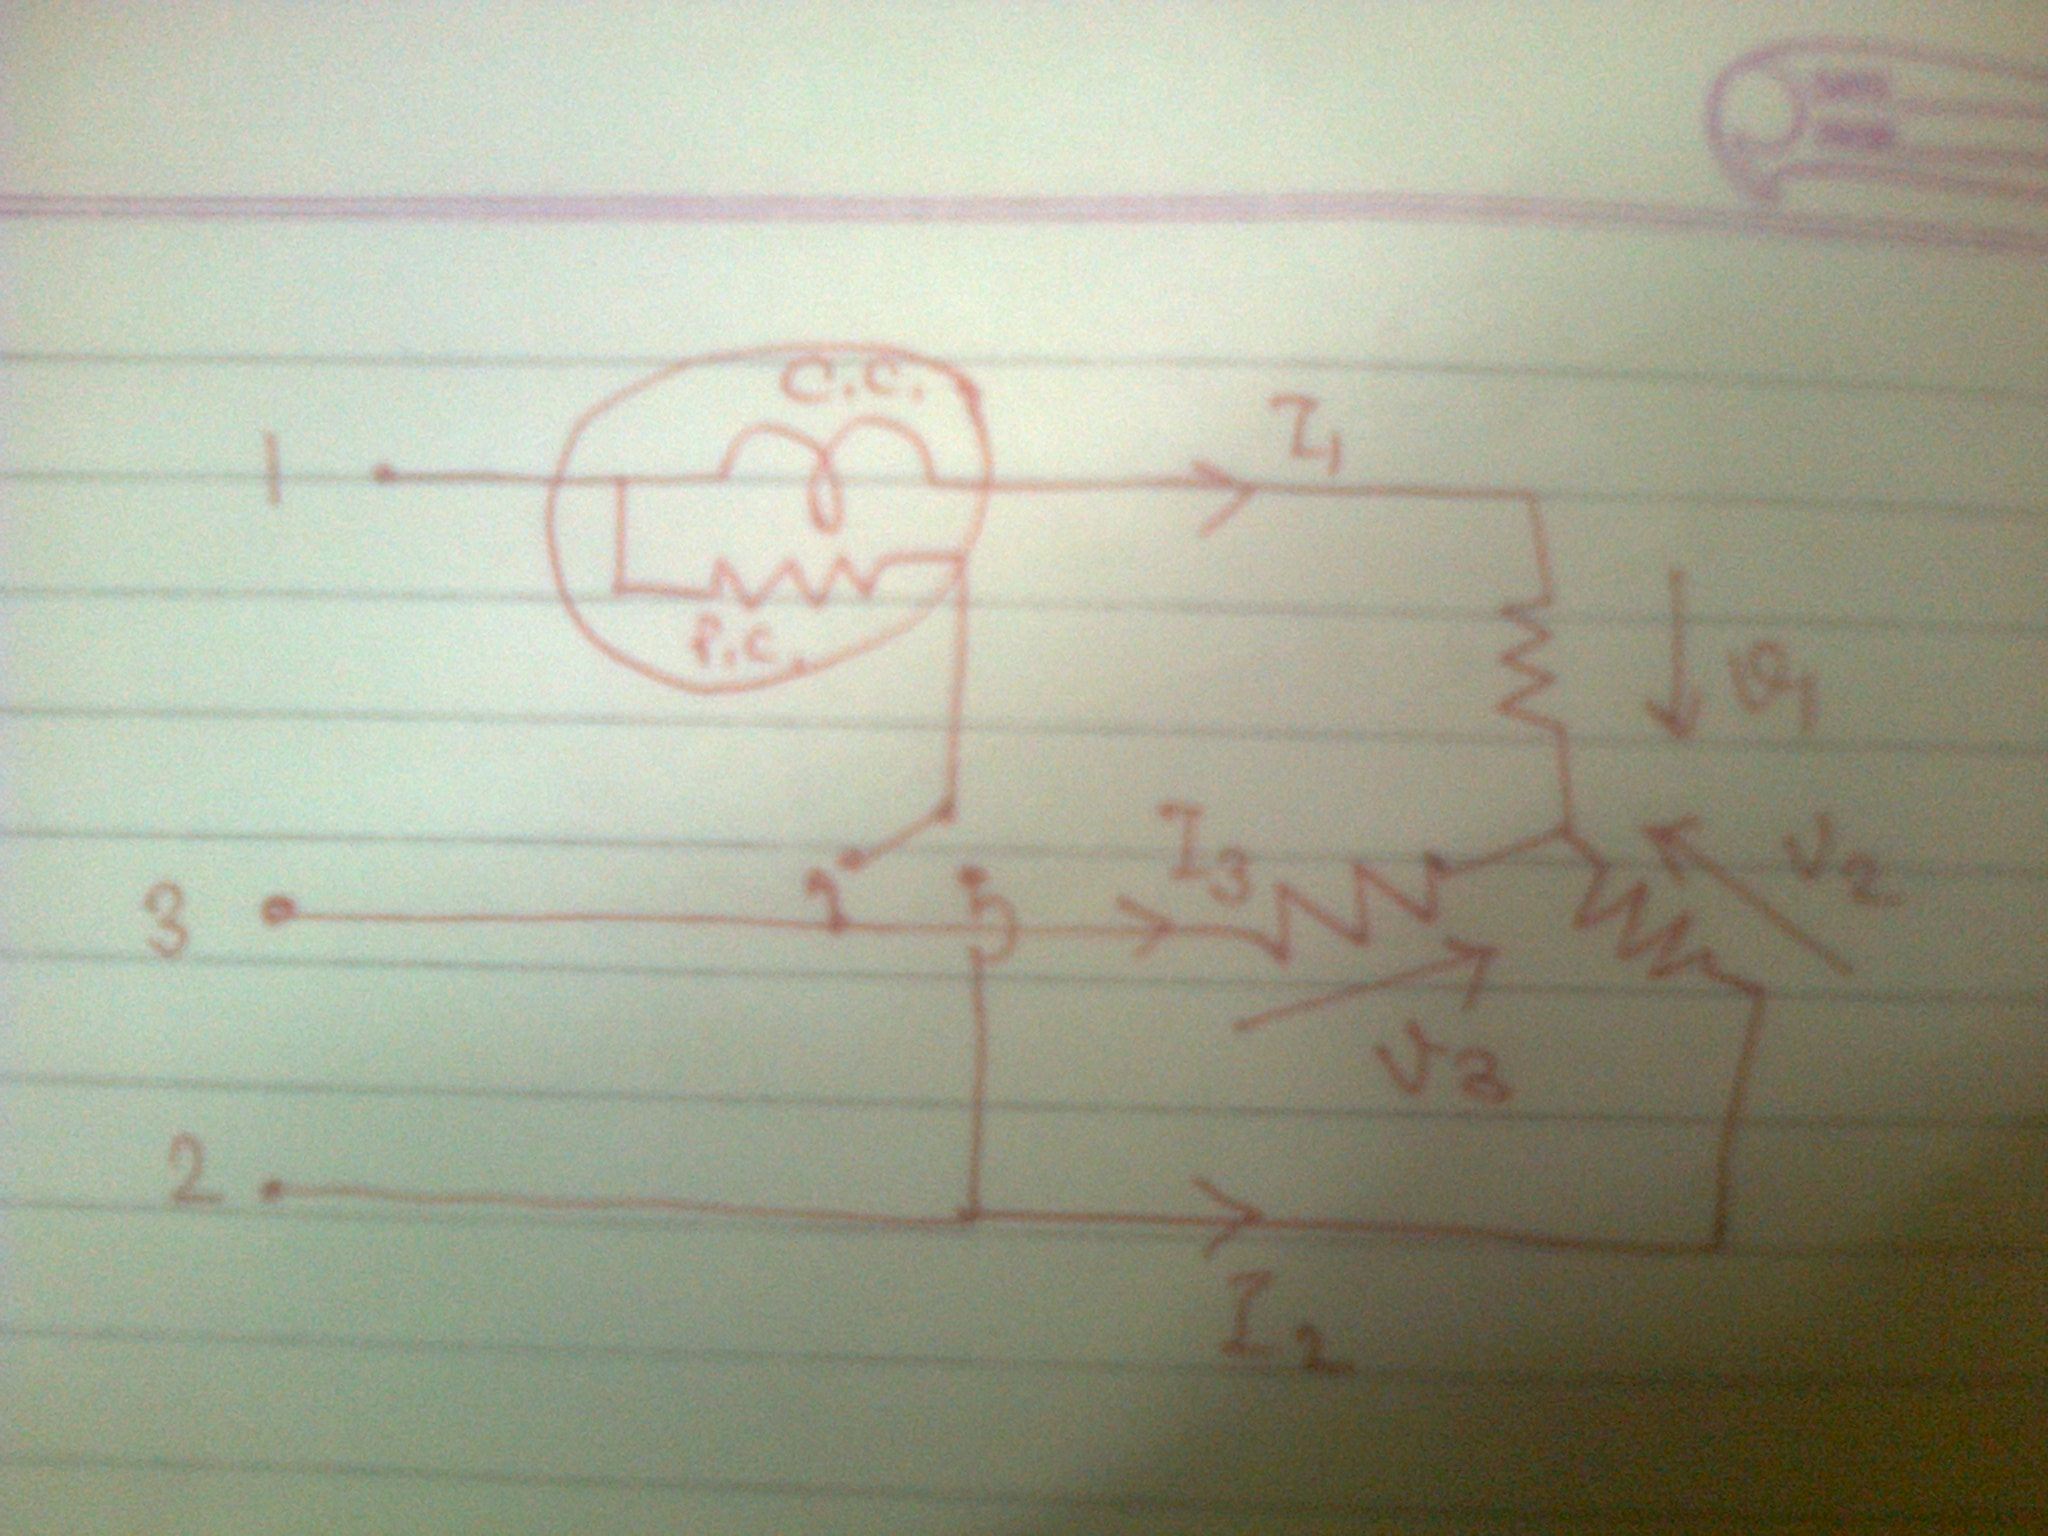 C.C.
1
I1
P.C.
v1
I3
v2
3
v3
2
I2